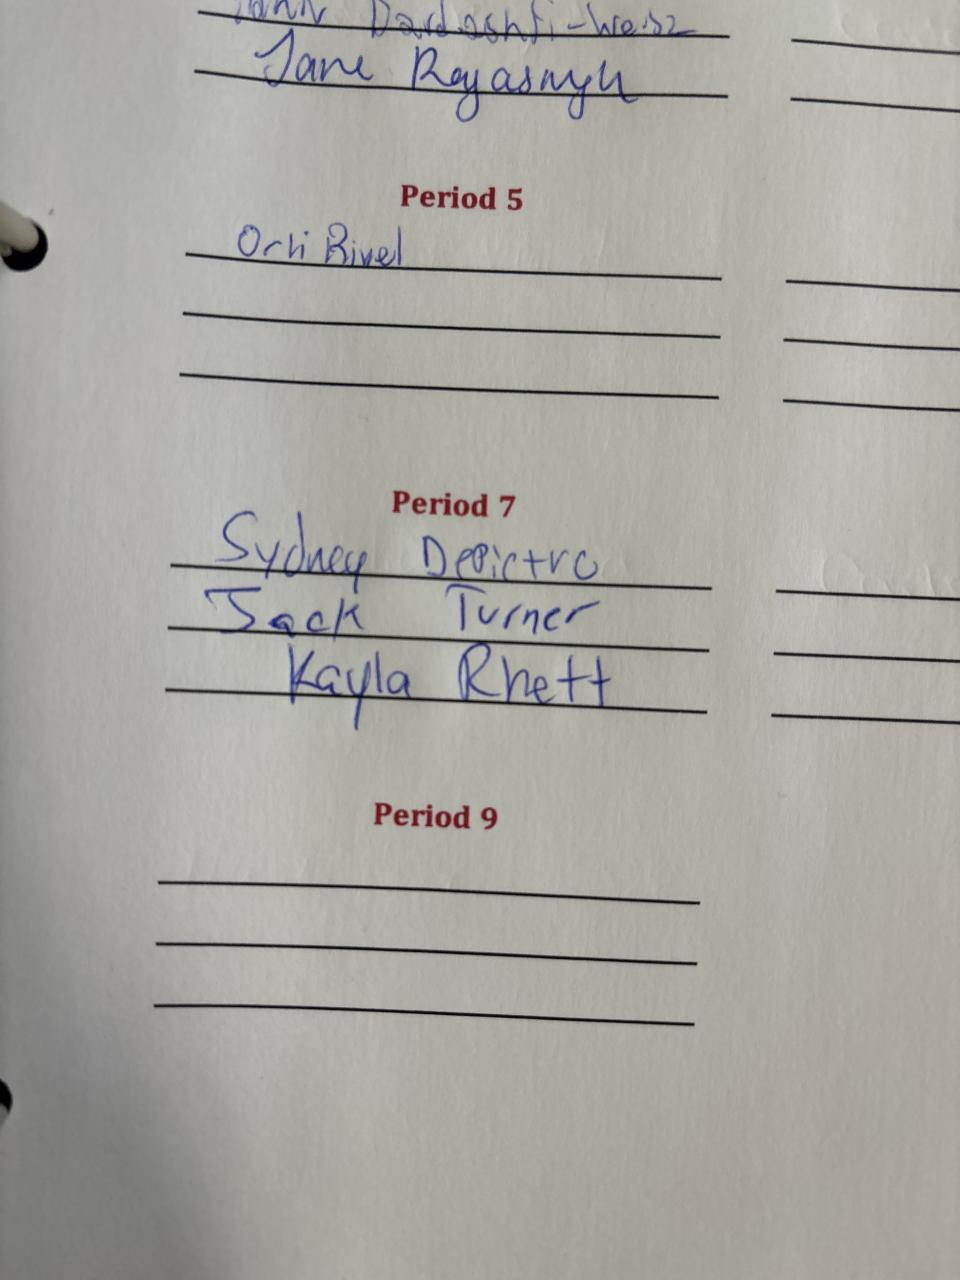 Dardashti-Weisz
Jane
Period 5
Orli Rivel
Period 7
Sydney
Jack Turner
Kayla Rhett
Period 9